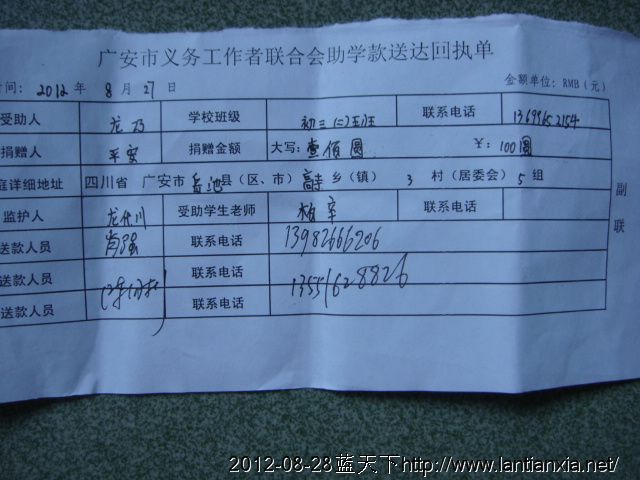 广安市义务工作者联合会助学款送达回执单
时间: 2012 年 8 月 27 日 金额单位: RMB (元)
受助人 龙乃 学校班级 初三(二)班 联系电话
捐赠人 平安 捐赠金额 大写: 壹佰圆 ¥: 100圆
庭详细地址 四川省 广安市 岳池 县(区、市) 乡(镇) 3 村(居委会) 5 组
监护人 龙代川 受助学生老师 联系电话
送款人员 肖强 联系电话 13982666206
送款人员 联系电话
送款人员 联系电话 13551628826
副联
2012-08-28蓝天下http://www.lantianxia.net/